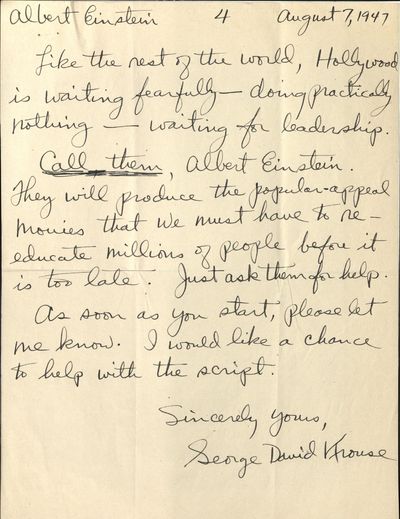 Albert Einstein 4 August 7, 1947
Like the rest of the world, Hollywood
is waiting fearfully — doing practically
nothing — waiting for leadership.
Call them, Albert Einstein.
They will produce the popular-appeal
movies that we must have to re-
educate millions of people before it
is too late. Just ask them for help.
As soon as you start, please let
me know. I would like a chance
to help with the script.
Sincerely yours,
George David Krouse